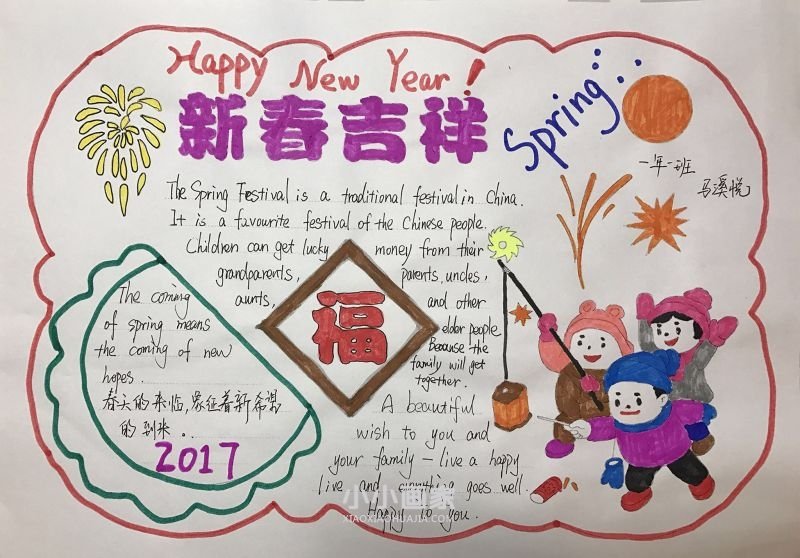 Happy New Year!
新春吉祥
Spring
一年一班
马溪悦
The Spring Festival is a traditional festival in China.
It is a favourite festival of the Chinese people.
Children can get lucky money from their
grandparents, parents, uncles,
aunts, and other
elder people
Because the
family will get
together.
福
The coming
of spring means
the coming of new
hopes.
春天的来临,象征着新希望
的到来。
2017
A beautiful
wish to you and
your family - live a happy
live and everything goes well.
Happy to you.
小小画家
XIAOXIAOHUAJIA.COM